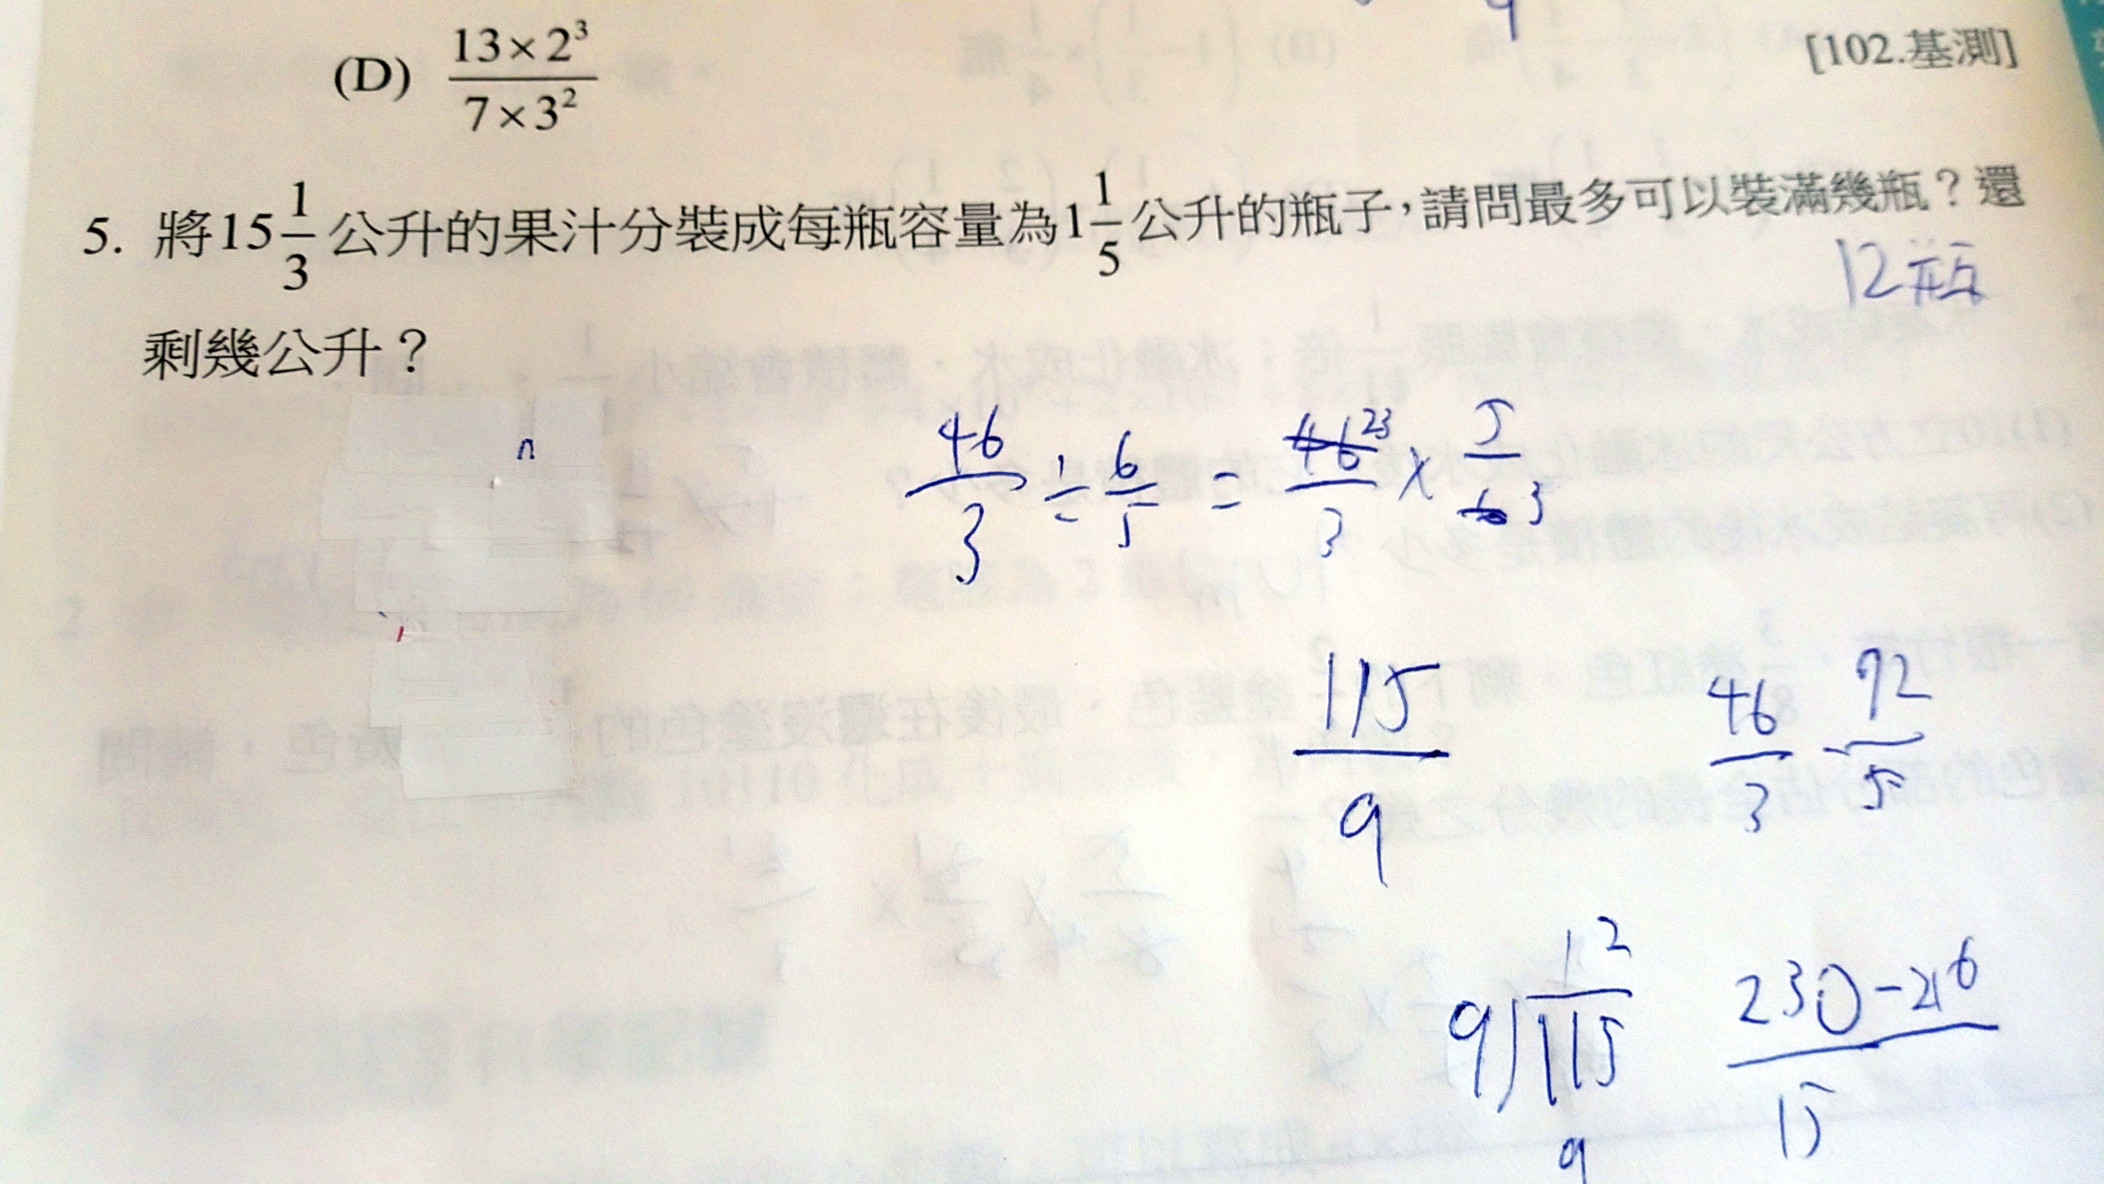 (D) \frac{13×2^3}{7×3^2}
[102.基測]
5. 將15\frac{1}{3}公升的果汁分裝成每瓶容量為1\frac{1}{5}公升的瓶子,請問最多可以裝滿幾瓶?還
12瓶
剩幾公升?
\frac{46}{3}÷\frac{6}{5}=\frac{46 23}{3}×\frac{5}{6 3}
\frac{115}{9}
\frac{46}{3}-\frac{72}{5}
12
9)115
9
\frac{230-216}{15}